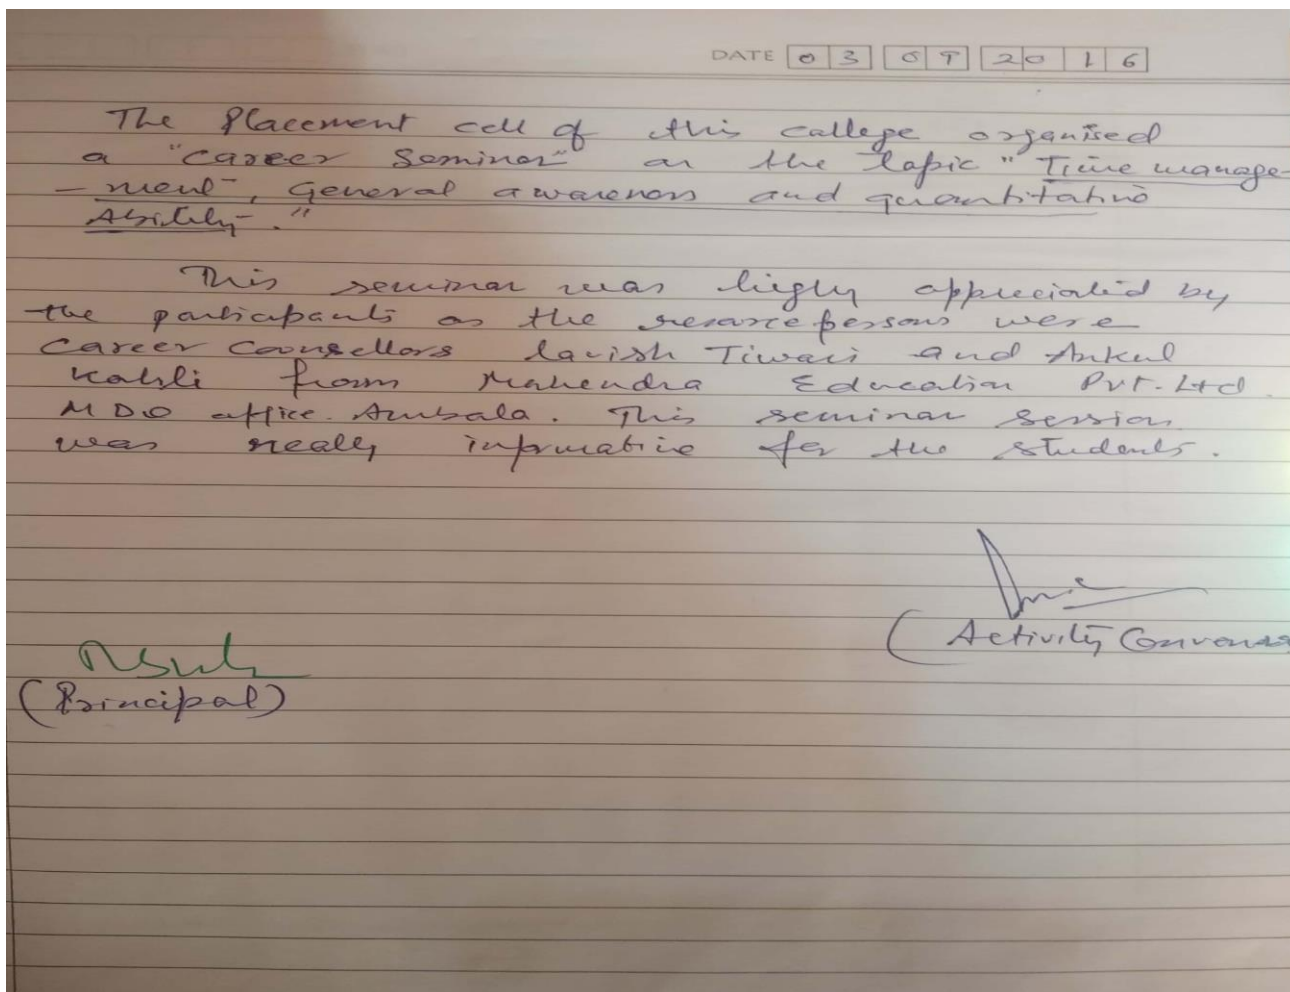 DATE 03 09 2016
The Placement cell of this college organised
a "career Seminar" on the topic "Time manage-
-ment, General awareness and quantitative
Ability."
This seminar was higly appreciated by
the participants as the resource persons were
Career Counsellors lavish Tiwari and Ankul
Kohli from Mahendra Education Pvt. Ltd.
MDO office Ambala. This seminar session
was really informative for the students.
(Activity Convenor
(Principal)